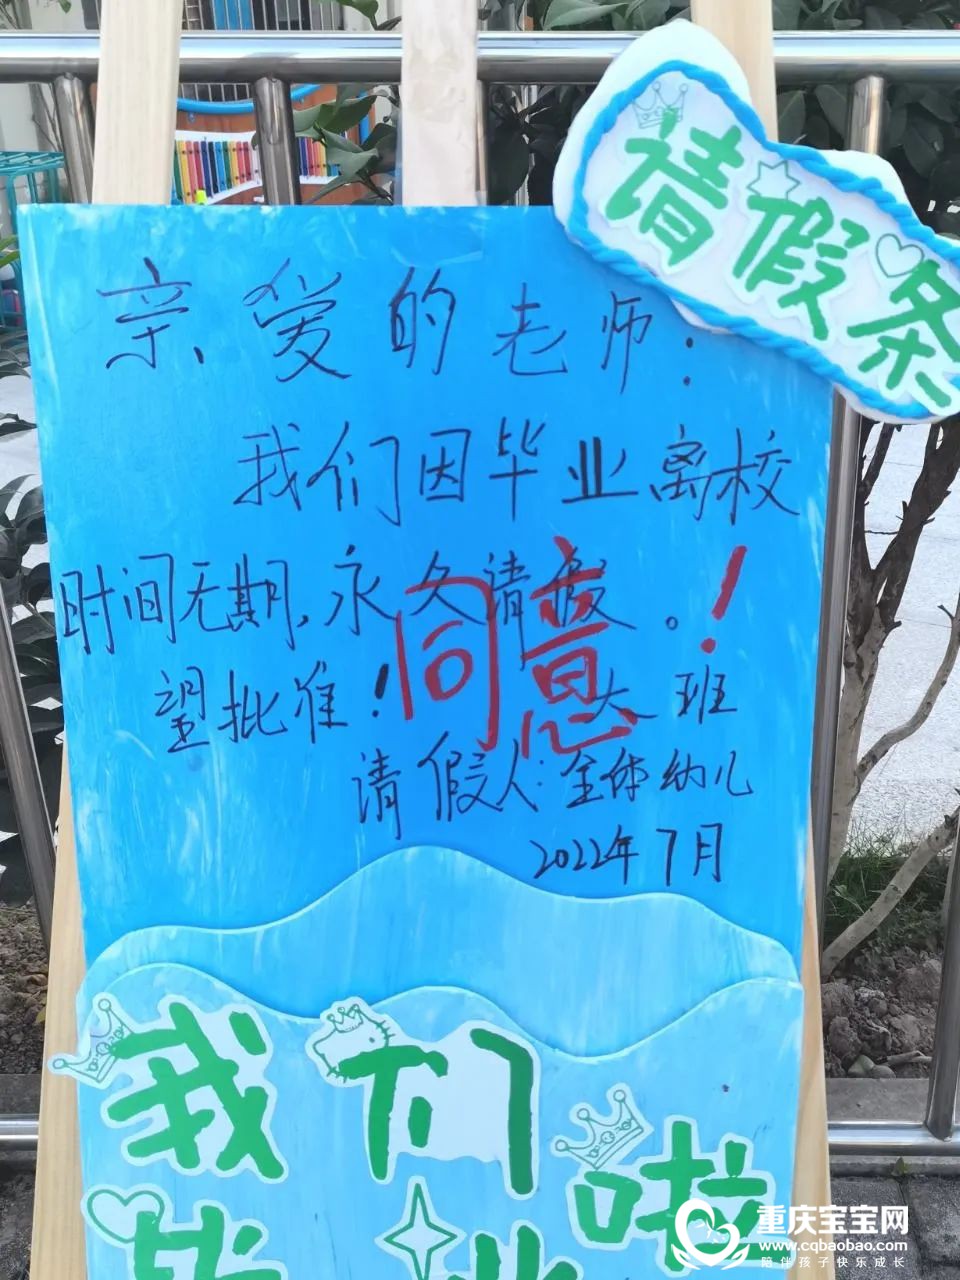 请假条
亲爱的老师:
我们因毕业离校
时间无期,永久请假。
望批准!
同意!
大一班
请假人:全体幼儿
2022年7月
我们
毕业啦
重庆宝宝网
www.cqbaobao.com
陪伴孩子快乐成长